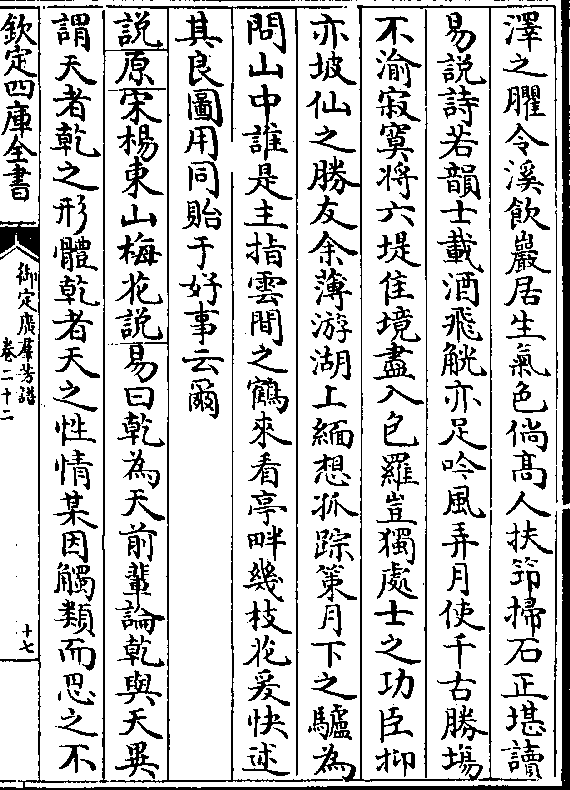 澤之臞令溪飲巖居生氣色倘髙人扶笻掃石正堪讀
易説詩若韻士載酒飛觥亦足吟風弄月使千古勝塲
不渝寂寞将六堤佳境盡入包羅豈獨處士之功臣抑
亦坡仙之勝友余薄游湖上緬想孤踪策月下之驢為
問山中誰是主指雲間之鶴來看亭畔幾枝花爰快述
其良圖用同貽于好事云爾
説原宋楊東山梅花説易曰乾為天前輩論乾與天異
謂天者乾之形體乾者天之性情某因觸類而思之不
欽定四庫全書
御定廣羣芳譜
卷二十二
十七